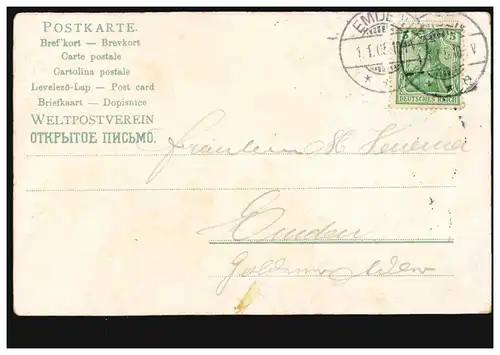 POSTKARTE.
Bref'kort — Brevkort
Carte postale
Cartolina postale
Levelező-Lap — Post card
Briefkaart — Dopisnice
WELTPOSTVEREIN
ОТКРЫТОЕ ПИСЬМО.
EMDEN
1.1.05
V
DEUTSCHES REICH
Fräulein M
Emden